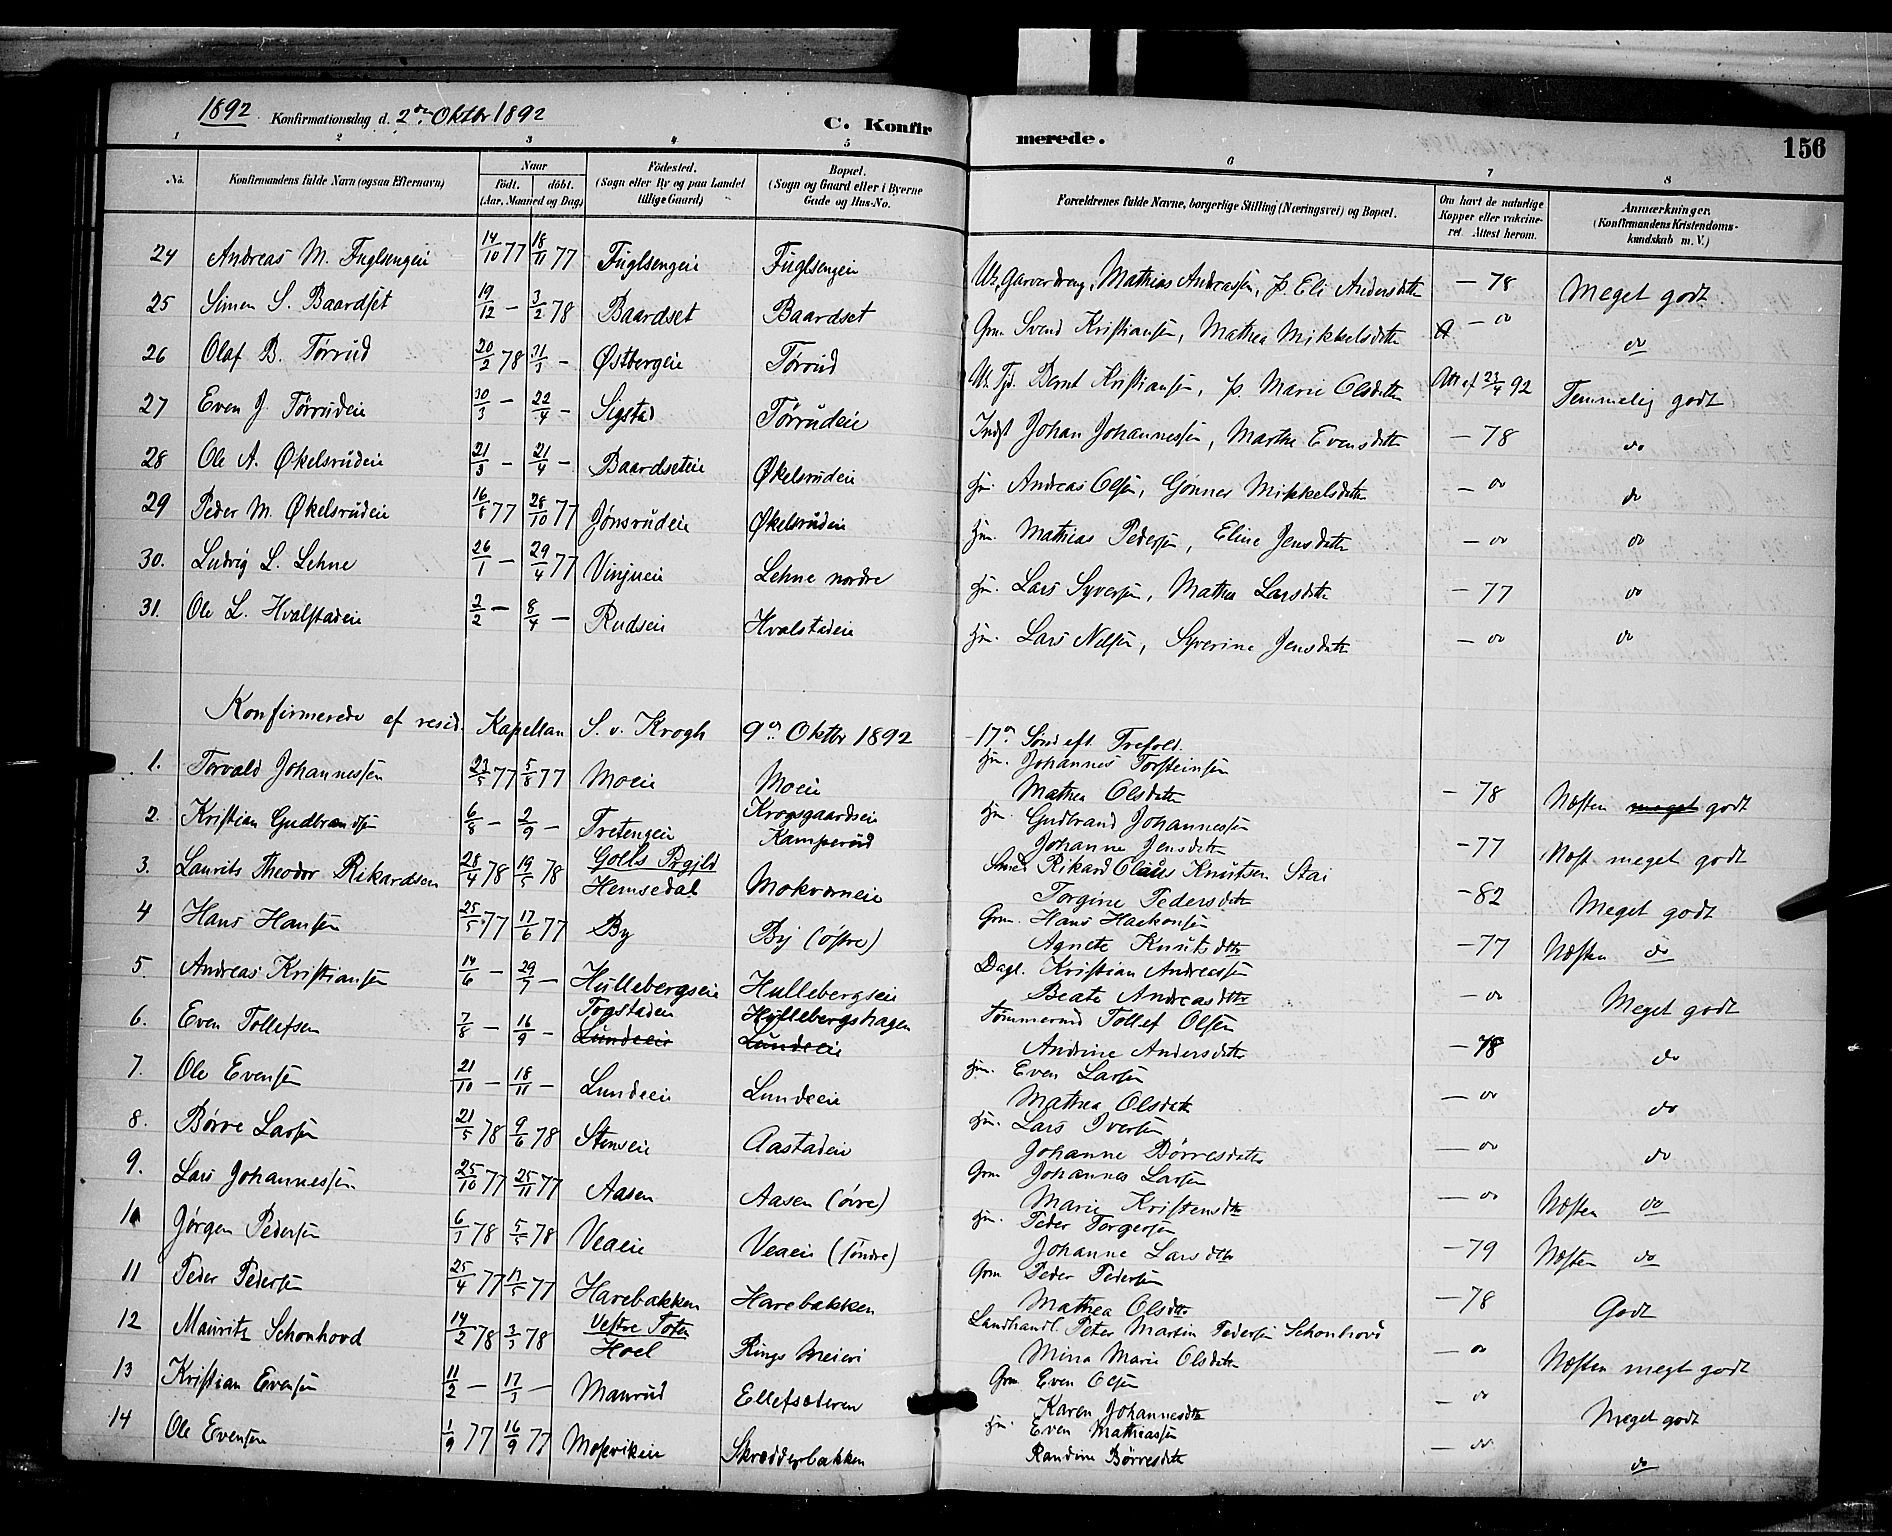 1892 Konfirmationsdag d. 2den Oktbr 1892 C. Konfirmerede. 156
1 2 3 4 5 6 7 8
No. Konfirmandens fulde Navn (ogsaa Efternavn) Naar Födt. döbt. (Aar, Maaned og Dag) Födested. (Sogn eller By og paa Landet tillige Gaard) Bopæl. (Sogn og Gaard eller i Byerne Gade og Hus-No. Forældrenes fulde Navne, borgerlige Stilling (Næringsvei) og Bopæl. Om havt de naturlige Kopper eller vakcineret. Attest herom. Anmærkninger. (Konfirmandens Kristendomskundskab m. V.)
24 Andreas M. Fuglsengeie 14/10 77 18/11 77 Fuglsengeie Fuglsengeie Garverdreng, Mathias Andreassen, p. Eli Andersdatter – 78 Meget godt
25 Simen S. Baardset 19/12 – 3/2 78 Baardset Baardset Grm. Svend Kristiansen, Mathea Mikkelsdatter – do do
26 Olaf B. Tørrud 20/2 78 31/3 – Østbergeie Tørrud Bernt Kristiansen, p. Marie Olsdatter Att. af 23/4 92 Temmelig godt
27 Even J. Tørrudeie 30/3 – 22/4 – Sigstad Tørrudeie Indst Johan Johannessen, Marthe Evensdatter – 78 do
28 Ole A. Økelsrudeie 21/3 – 21/4 – Baardseteie Økelsrudeie Hm. Andreas Olsen, Gønner Mikkelsdatter – do do
29 Peder M. Økelsrudeie 16/8 77 28/10 77 Jønsrudeie Økelsrudeie Hm. Mathias Pedersen, Eline Jensdatter – do do
30. Ludvig L. Lehne 26/1 – 29/4 77 Vinjueie Lehne nordre Hm. Lars Syversen, Mathea Larsdatter – 77 do
31. Ole L. Hvalstadeie 2/2 – 8/4 – Rudseie Hvalstadeie Hm. Lars Nilsen, Syverine Jensdatter – do do
Konfirmerede af resid. Kapellan S. v. Krogh 9de Oktbr 1892 – 17de Sønd. eft. Trefold.
1. Torvald Johannessen 23/5 77 5/8 77 Moeie Moeie Hm. Johannes Torsteinsen
Mathea Olsdatter – 78 Næsten meget godt
2. Kristian Gudbrandsen 6/8 – 2/9 – Tretengeie Krogsgaardseie Kamperud Hm. Gudbrand Johannessen
Johanne Jensdatter – 77 Næst. meget godt
3. Laurits Theodor Rikardsen 28/4 78 19/5 78 Golls Prgjld Hemsedal Mokværneie Smed Rikard Olaus Knutsen Stai
Torgine Pedersdatter – 82 Meget godt
4 Hans Hansen 25/5 77 17/6 77 By By (østre) Grm. Hans Haakonsen
Agnete Knutsdtr – 77 Næsten do
5. Andreas Kristiansen 14/6 – 29/7 – Hullebergseie Hullebergseie Dagl. Kristian Andreassen
Beate Andreasdtr – do Meget godt
6. Even Tollefsen 7/8 – 16/9 – Togstadeie Lundeeie Hullebergshagen Lundeeie Tømmermd Tollef Olsen
Andrine Andersdatter – 78 do
7. Ole Evensen 21/10 – 18/11 – Lundeeie Lundeeie Hm. Even Larsen
Mathea Olsdatter – do do
8. Børre Larsen 21/5 78 9/6 78 Stenseie Aastadeie Hm. Lars Iversen
Johanne Børresdatter – do do
9. Lars Johannessen 25/10 77 25/11 77 Aasen Aasen (øvre) Grm Johannes Larsen
Marie Kristensdtr – do Næsten do
10 Jørgen Pedersen 6/3 78 5/5 78 Veaeie Veaeie (søndre) Hm. Peder Torgersen
Johanne Larsdtr – 79 Næsten do
11 Peder Pedersen 25/4 77 17/5 77 Harebakken Harebakken Grm Peder Pedersen
Mathea Olsdtr – 78 Godt
12 Mauritz Schonhovd 14/2 78 3/3 78 Vestre Toten Hoel Rings Meieri Landhandl. Peter Martin Pedersen Schonhovd
Mina Marie Olsdatter – do Næsten meget godt
13 Kristian Evensen 11/2 – 17/3 – Manrud Ellefsæteren Grm. Even Olsen
Karen Johannesdtr – do Meget godt
14 Ole Evensen 1/9 77 16/9 77 Moserikeie Skrædderbakken Hm. Even Mathiassen
Randine Børresdatter – do do